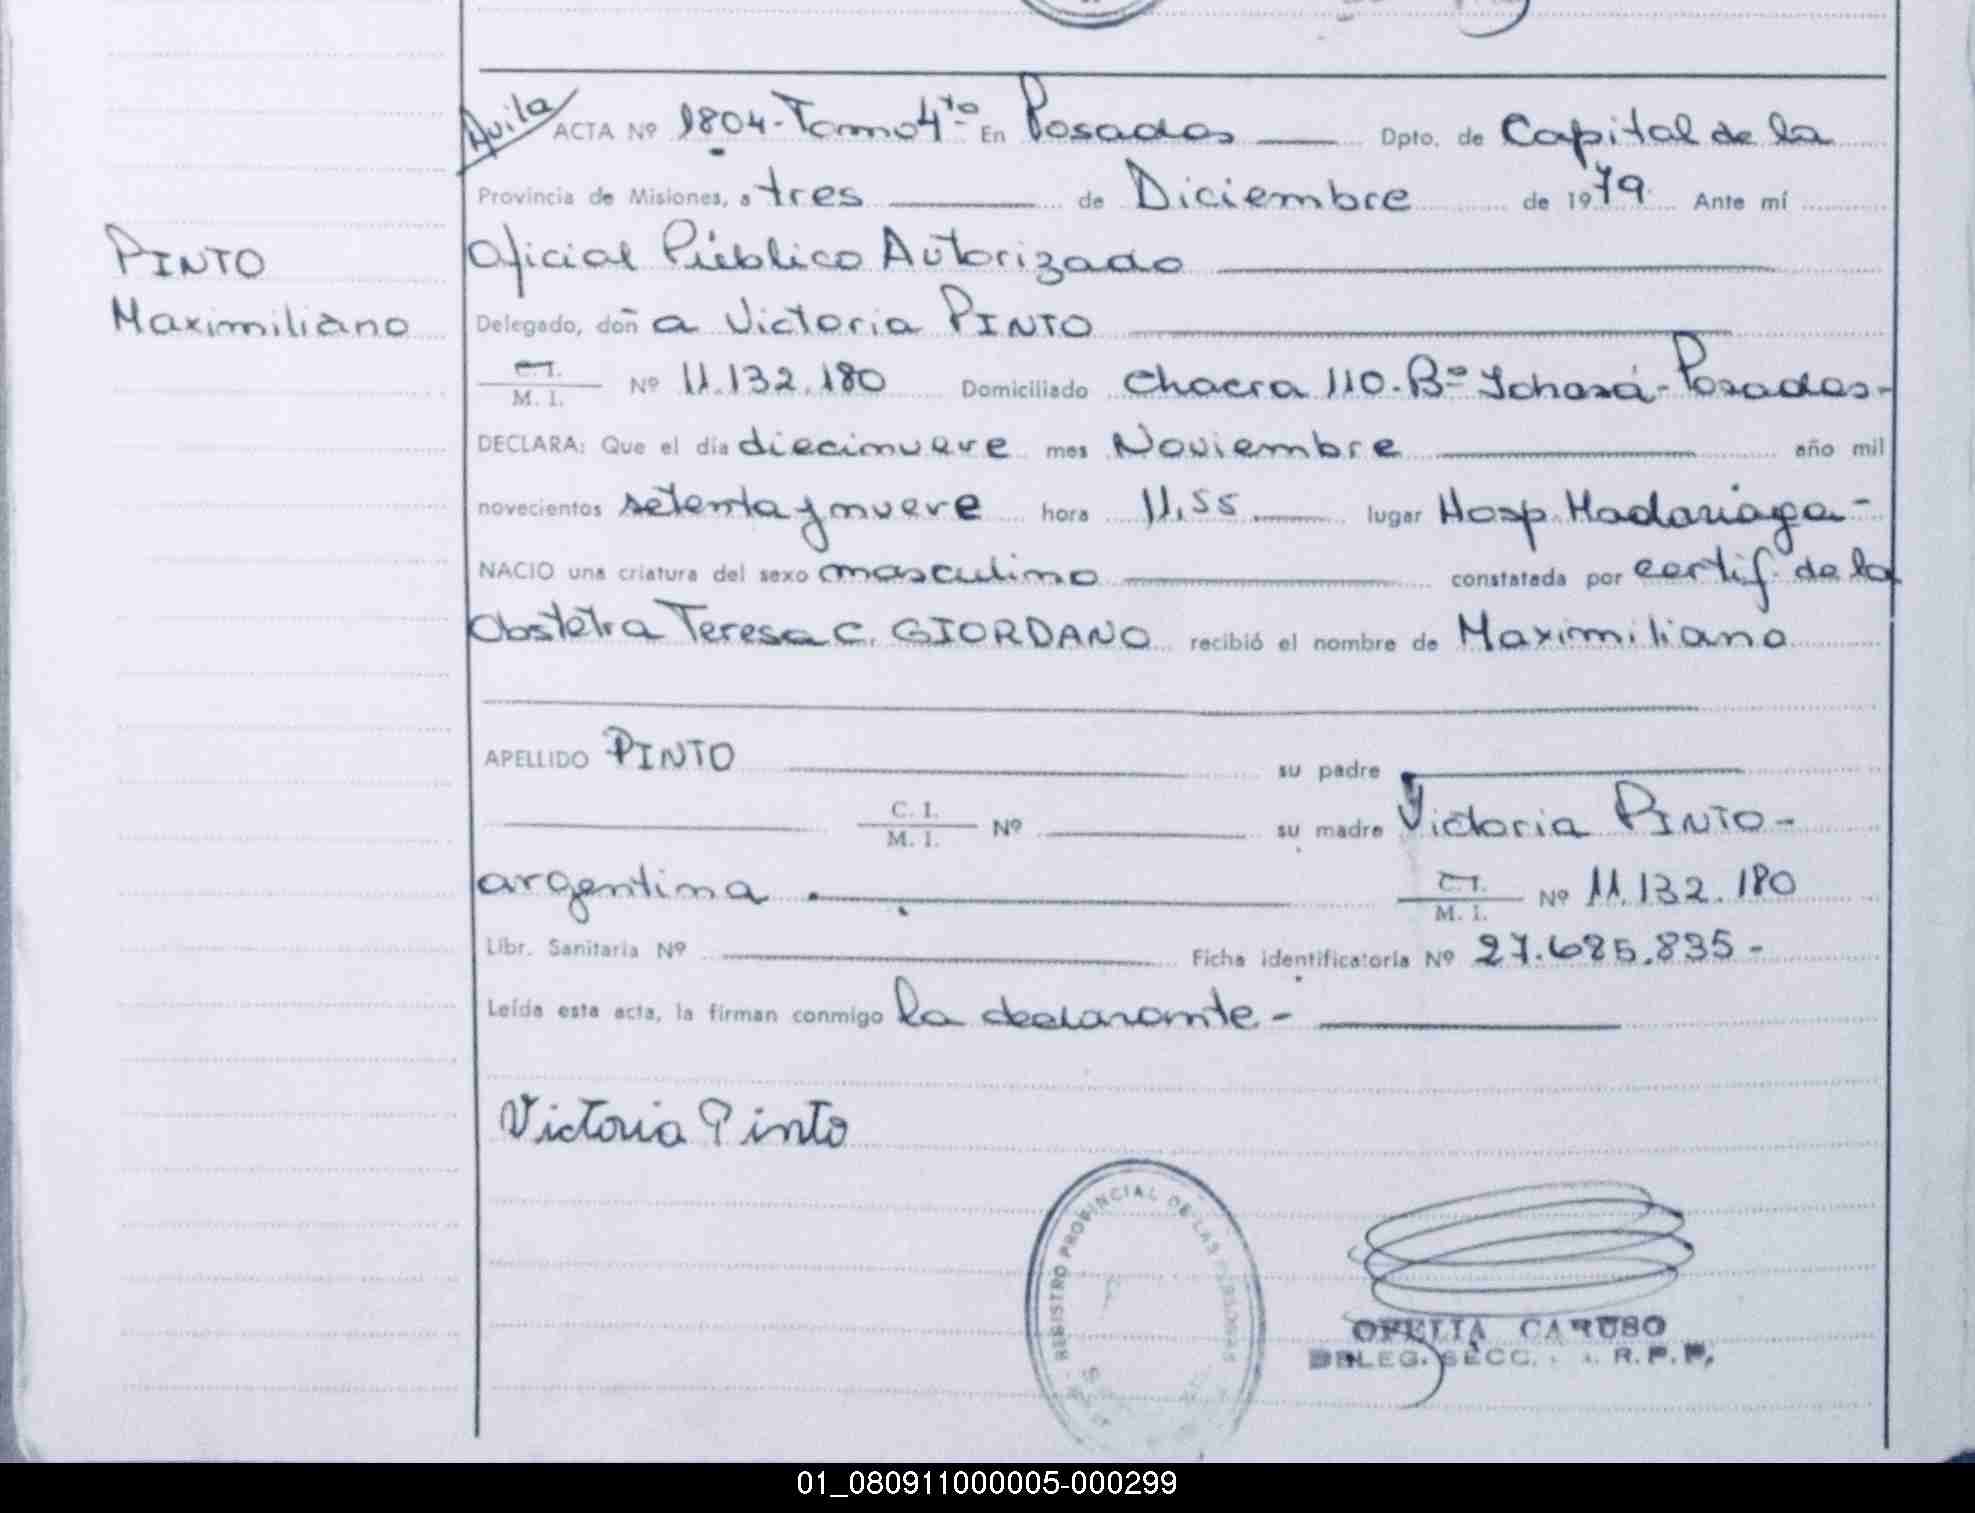 Avila ACTA Nº 1804-Tomo 4to En Posadas Dpto. de Capital de la
Provincia de Misiones, a tres de Diciembre de 1979 Ante mí
PINTO
Oficial Público Autorizado
Maximiliano
Delegado, doña Victoria PINTO
C. I. / M. I. Nº 11.132.180 Domiciliado Chacra 110-Bº Posadas-
DECLARA: Que el día diecinueve mes Noviembre año mil
novecientos setenta y nueve hora 11,55 lugar Hosp. Madariaga-
NACIO una criatura del sexo masculino constatada por certif. de la
Obstetra Teresa C. GIORDANO recibió el nombre de Maximiliano
APELLIDO PINTO su padre
C. I. / M. I. Nº su madre Victoria PINTO-
argentina C. I. / M. I. Nº 11.132.180
Libr. Sanitaria Nº Ficha identificatoria Nº 27.685.835-
Leída esta acta, la firman conmigo la declarante-
Victoria Pinto
REGISTRO PROVINCIAL DE LAS PERSONAS
OFELIA CARUSO
DELEG. SECC. R.P.P.
01_080911000005-000299